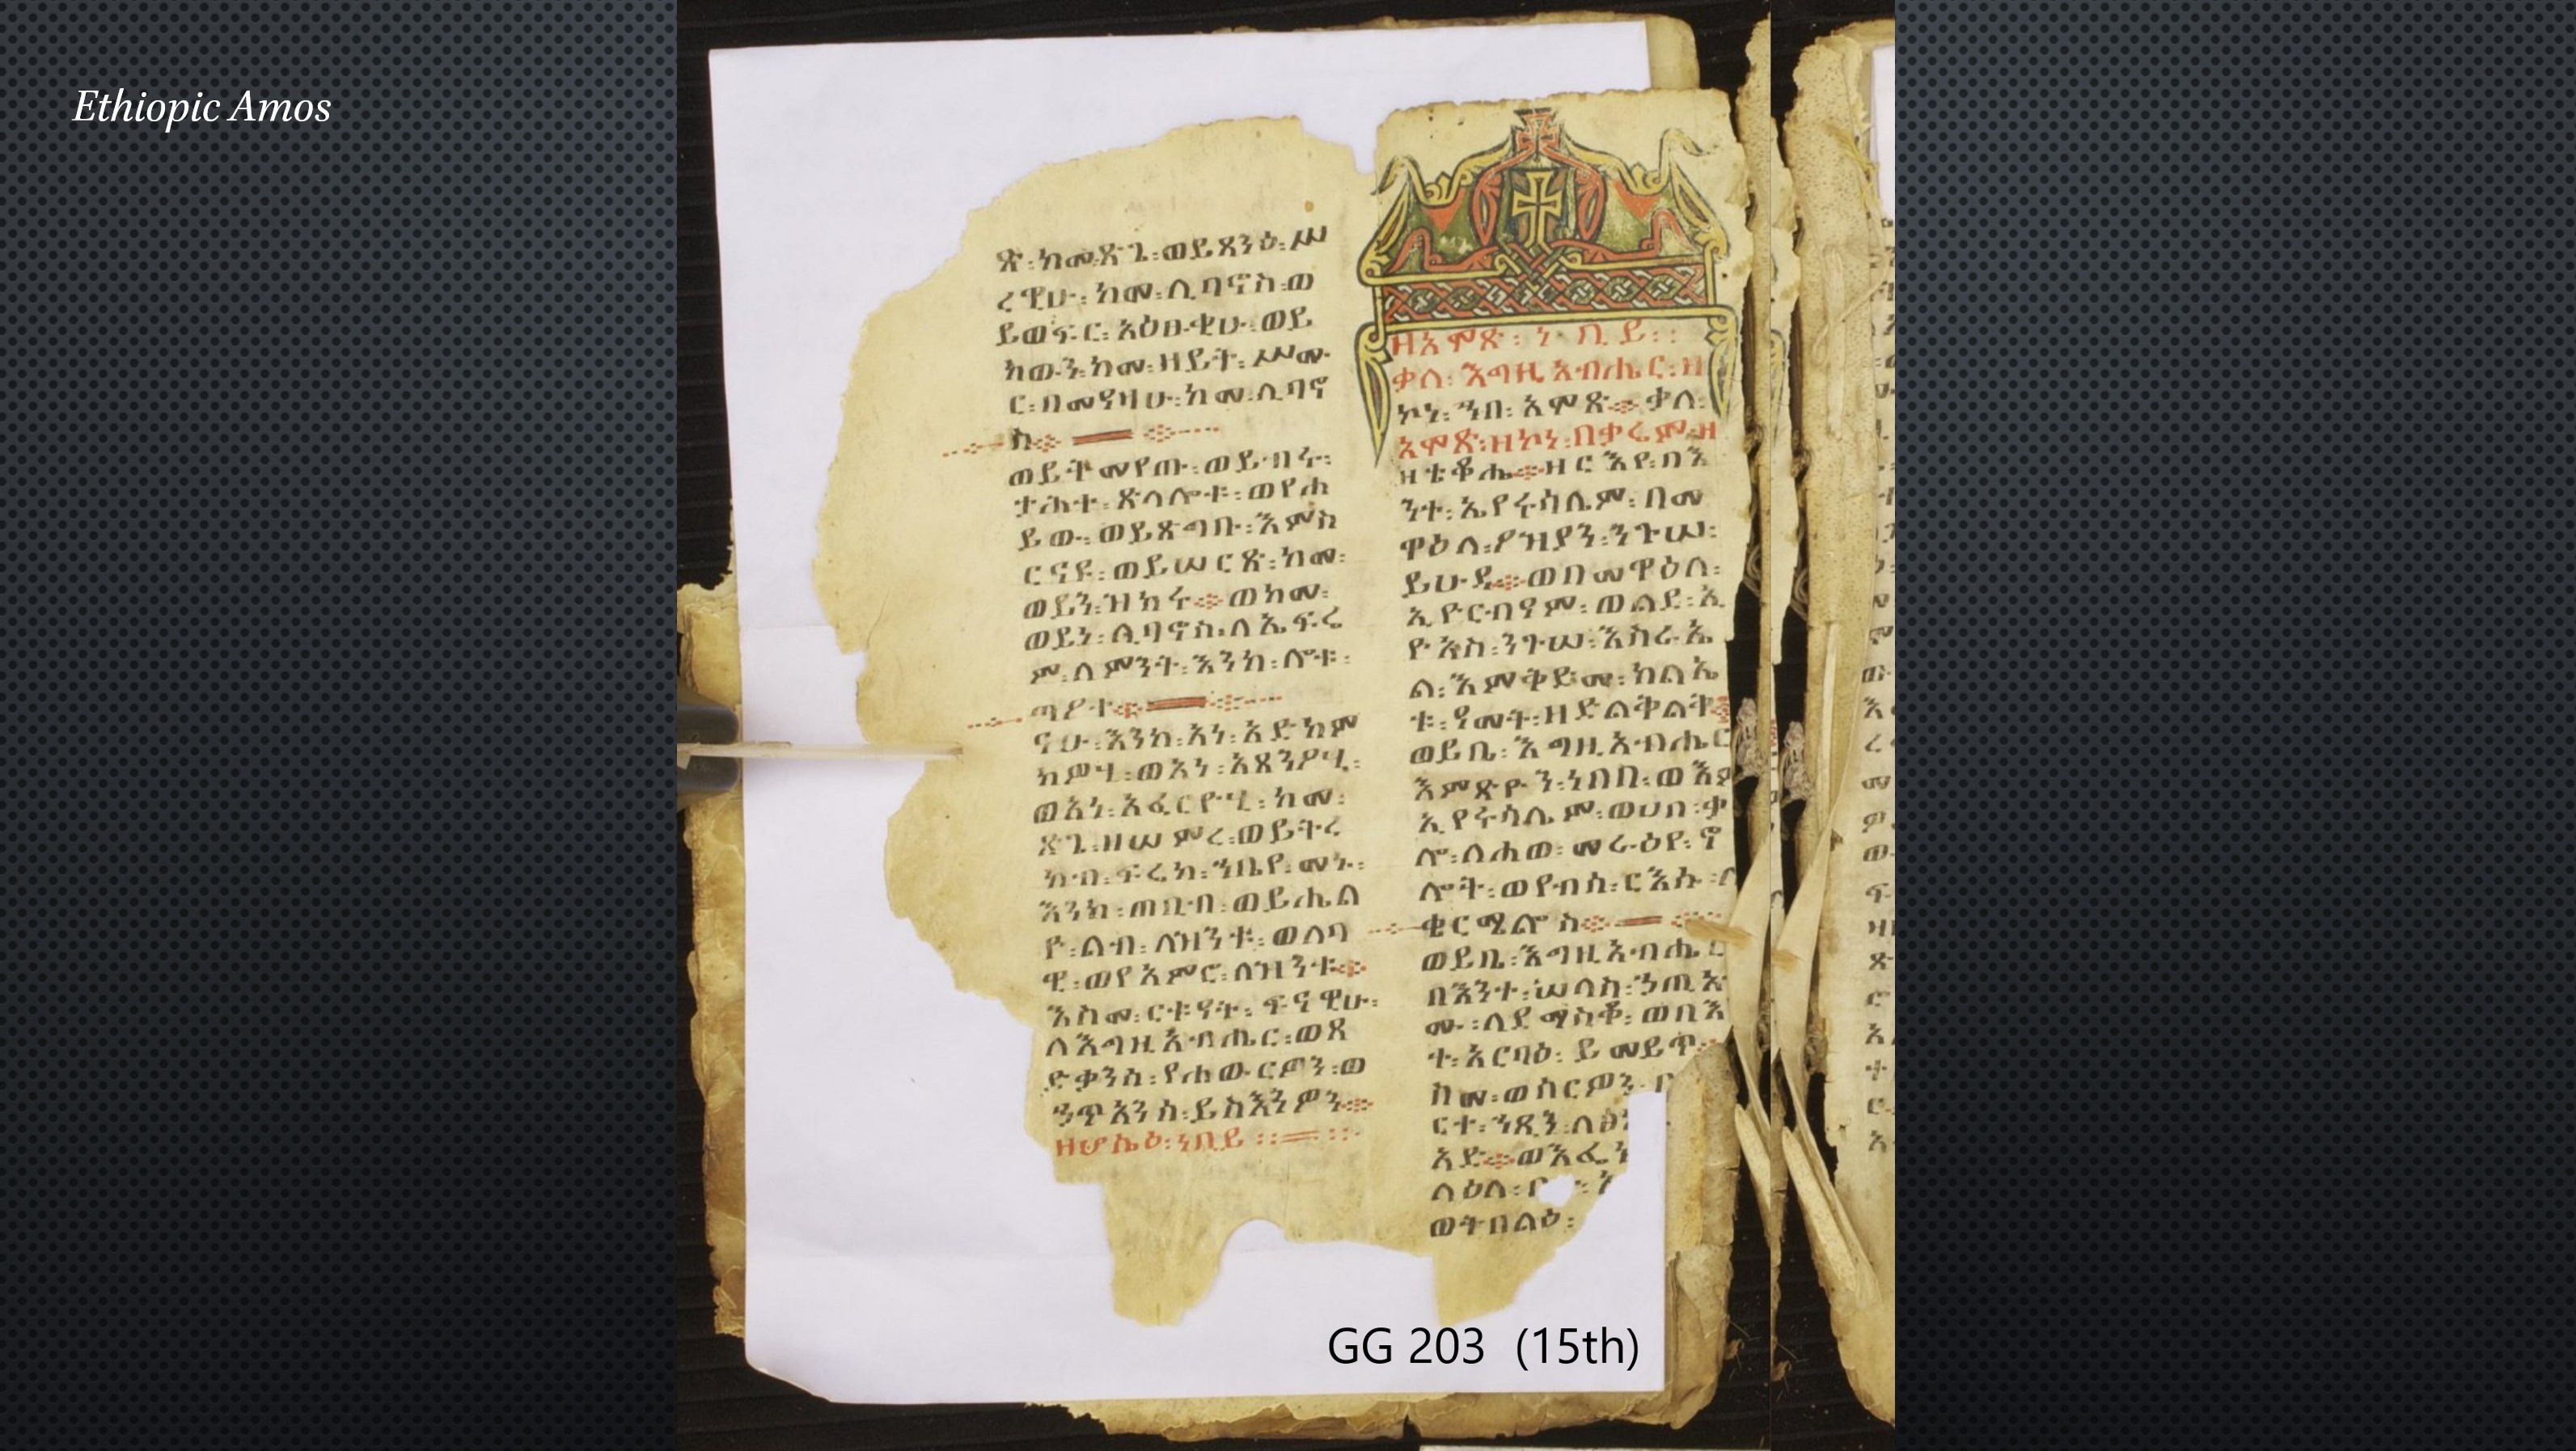 Ethiopic Amos
ጽ፡ከመ፡ጽጌ፡ወይጸንዕ፡ሥ
ረዊሁ፡ከመ፡ሊባኖስ፡ወ
ይወፍር፡አዕፁቂሁ፡ወይ
ከውን፡ከመ፡ዘይት፡ሥሙ
ር፡በመዓዛሁ፡ከመ፡ሊባኖ
ስ።
ወይትመየጡ፡ወይብሩ፡
ታሕተ፡ጽላሎቱ፡ወየሐ
ይው፡ወይጸግቡ፡እምስ
ርናይ፡ወይሠርጽ፡ከመ፡
ወይን፡ዝክሩ።ወከመ፡
ወይነ፡ሊባኖስ፡ለኤፍሬ
ም፡ለምንት፡እንከ፡ሎቱ፡
ጣዖተ።
ናሁ፡እንከ፡አነ፡አድከም
ክዎ፡ወአነ፡አጸንዖ፡
ወአነ፡አፈርዮ፡ከመ፡
ጽጌ፡ዘሠምረ፡ወይትረ
ከብ፡ፍሬከ፡ኀቤየ፡መኑ፡
እንከ፡ጠቢብ፡ወይሔል
ዮ፡ልብ፡ለዝንቱ፡ወለባ
ዊ፡ወየአምሮ፡ለዝንቱ።
እስመ፡ርቱዓት፡ፍናዊሁ፡
ለእግዚአብሔር፡ወጻ
ድቃንስ፡የሐውርዎን፡ወ
ኃጥአንስ፡ይስእንዎን።
ዘሆሴዕ፡ነቢይ።
ዘአሞጽ፡ነቢይ።
ቃለ፡እግዚአብሔር፡ዘ
ኮነ፡ኀበ፡አሞጽ።ቃለ፡
አሞጽ፡ዘኮነ፡በቃሬም፡ዘ
ዘቴቆሔ።ዘርእየ፡በእ
ንተ፡ኢየሩሳሌም፡በመ
ዋዕለ፡ዖዝያን፡ንጉሠ፡
ይሁዳ።ወበመዋዕለ፡
ኢዮርብዓም፡ወልደ፡ኢ
ዮአስ፡ንጉሠ፡እስራኤ
ል፡እምቅድመ፡ክልኤ
ቱ፡ዓመት፡ዘድልቅልቅ።
ወይቤ፡እግዚአብሔር
እምጽዮን፡ነበበ፡ወእም
ኢየሩሳሌም፡ወሀበ፡ቃ
ሎ፡ለሐወ፡መራዕየ፡ኖ
ሎት፡ወየብሰ፡ርእሱ፡ለ
ቂርሜሎስ።
ወይቤ፡እግዚአብሔር
በእንተ፡ሠላስ፡ኃጢአ
ሙ፡ለደማስቆ፡ወበእ
ተ፡አርባዕ፡ይመይጥ።
ከመ፡ወሰርዎን፡
ርተ፡ኀጺን፡ለፅን
አድ።ወእፌኑ
ላዕለ፡
ወትበልዕ፡
GG 203 (15th)